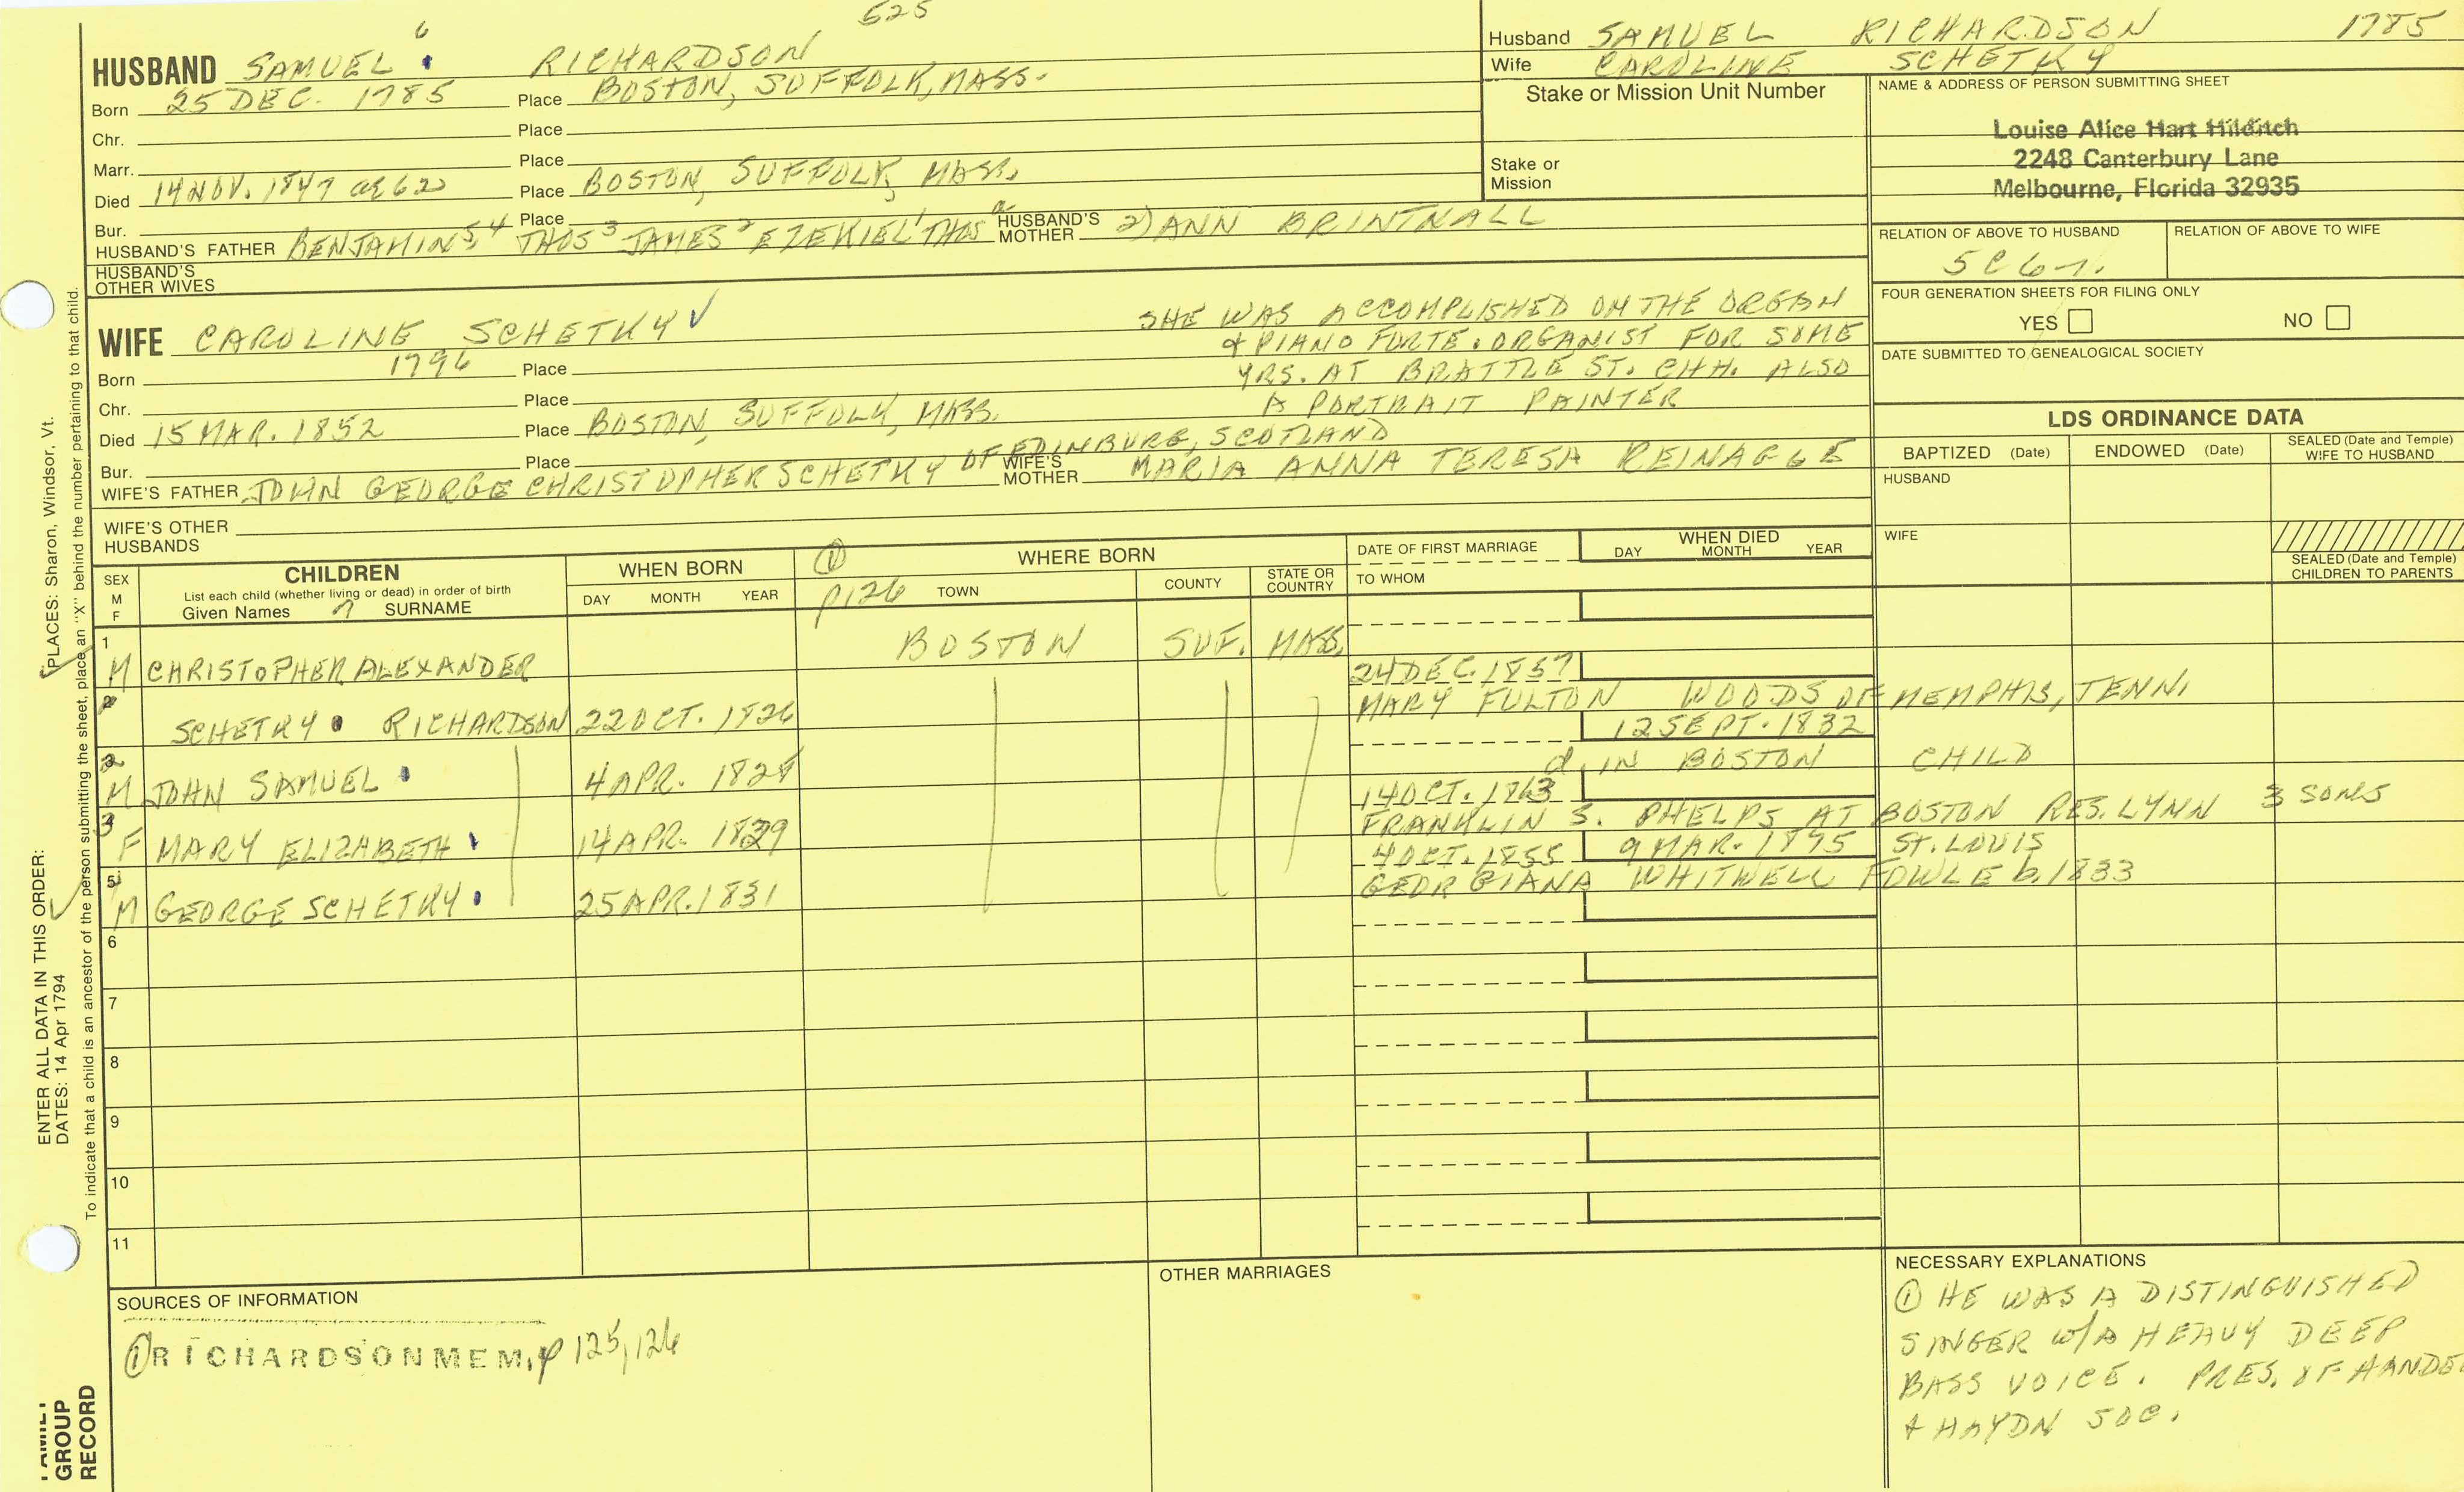 525
HUSBAND SAMUEL 6 RICHARDSON
Born 25 DEC. 1785 Place BOSTON, SUFFOLK, MASS.
Chr. Place
Marr. Place
Died 14 NOV. 1847 ae 62 Place BOSTON, SUFFOLK, MASS.
Bur. Place
HUSBAND'S FATHER BENJAMIN 5, 4 THOS 3 JAMES 2 EZEKIEL 1 THOS a HUSBAND'S MOTHER 2) ANN BRINTNALL
HUSBAND'S
OTHER WIVES
WIFE CAROLINE SCHETKY ✓
Born 1796 Place
Chr. Place
Died 15 MAR. 1852 Place BOSTON, SUFFOLK, MASS.
Bur. Place
SHE WAS ACCOMPLISHED ON THE ORGAN
& PIANO FORTE. ORGANIST FOR SOME
YRS. AT BRATTLE ST. CHH. ALSO
A PORTRAIT PAINTER
WIFE'S FATHER JOHN GEORGE CHRISTOPHER SCHETKY OF EDINBURG, SCOTLAND WIFE'S MOTHER MARIA ANNA TERESA REINAGLE
WIFE'S OTHER
HUSBANDS
Husband SAMUEL RICHARDSON 1785
Wife CAROLINE SCHETKY
Stake or Mission Unit Number
Stake or
Mission
NAME & ADDRESS OF PERSON SUBMITTING SHEET
Louise Alice Hart Hilditch
2248 Canterbury Lane
Melbourne, Florida 32935
RELATION OF ABOVE TO HUSBAND RELATION OF ABOVE TO WIFE
5C6r.
FOUR GENERATION SHEETS FOR FILING ONLY
YES NO
DATE SUBMITTED TO GENEALOGICAL SOCIETY
LDS ORDINANCE DATA
BAPTIZED (Date) ENDOWED (Date) SEALED (Date and Temple) WIFE TO HUSBAND
HUSBAND
WIFE
SEALED (Date and Temple)
CHILDREN TO PARENTS
SEX
M
F
CHILDREN
List each child (whether living or dead) in order of birth
Given Names 7 SURNAME
WHEN BORN
DAY MONTH YEAR
① p126
WHERE BORN
TOWN COUNTY STATE OR COUNTRY
DATE OF FIRST MARRIAGE
TO WHOM
WHEN DIED
DAY MONTH YEAR
1 M CHRISTOPHER ALEXANDER BOSTON SUF. MASS.
24 DEC. 1857
2 SCHETKY RICHARDSON 22 OCT. 1826 MARY FULTON WOODS OF MEMPHIS, TENN.
12 SEPT. 1832
2 M JOHN SAMUEL 4 APR. 1828 d. IN BOSTON CHILD
14 OCT. 1863
3 F MARY ELIZABETH 14 APR. 1829 FRANKLIN S. PHELPS AT BOSTON RES. LYNN 3 SONS
4 OCT. 1855 9 MAR. 1895 ST. LOUIS
5 M GEORGE SCHETKY 25 APR. 1831 GEORGIANA WHITWELL FOWLE b. 1833
6
7
8
9
10
11
SOURCES OF INFORMATION
① RICHARDSON MEM. p 125, 126
OTHER MARRIAGES
NECESSARY EXPLANATIONS
① HE WAS A DISTINGUISHED
SINGER W/A HEAVY DEEP
BASS VOICE. PRES. OF HANDE
& HAYDN SOC.
ENTER ALL DATA IN THIS ORDER:
DATES: 14 Apr 1794
PLACES: Sharon, Windsor, Vt.
To indicate that a child is an ancestor of the person submitting the sheet, place an "X" behind the number pertaining to that child.
FAMILY
GROUP
RECORD